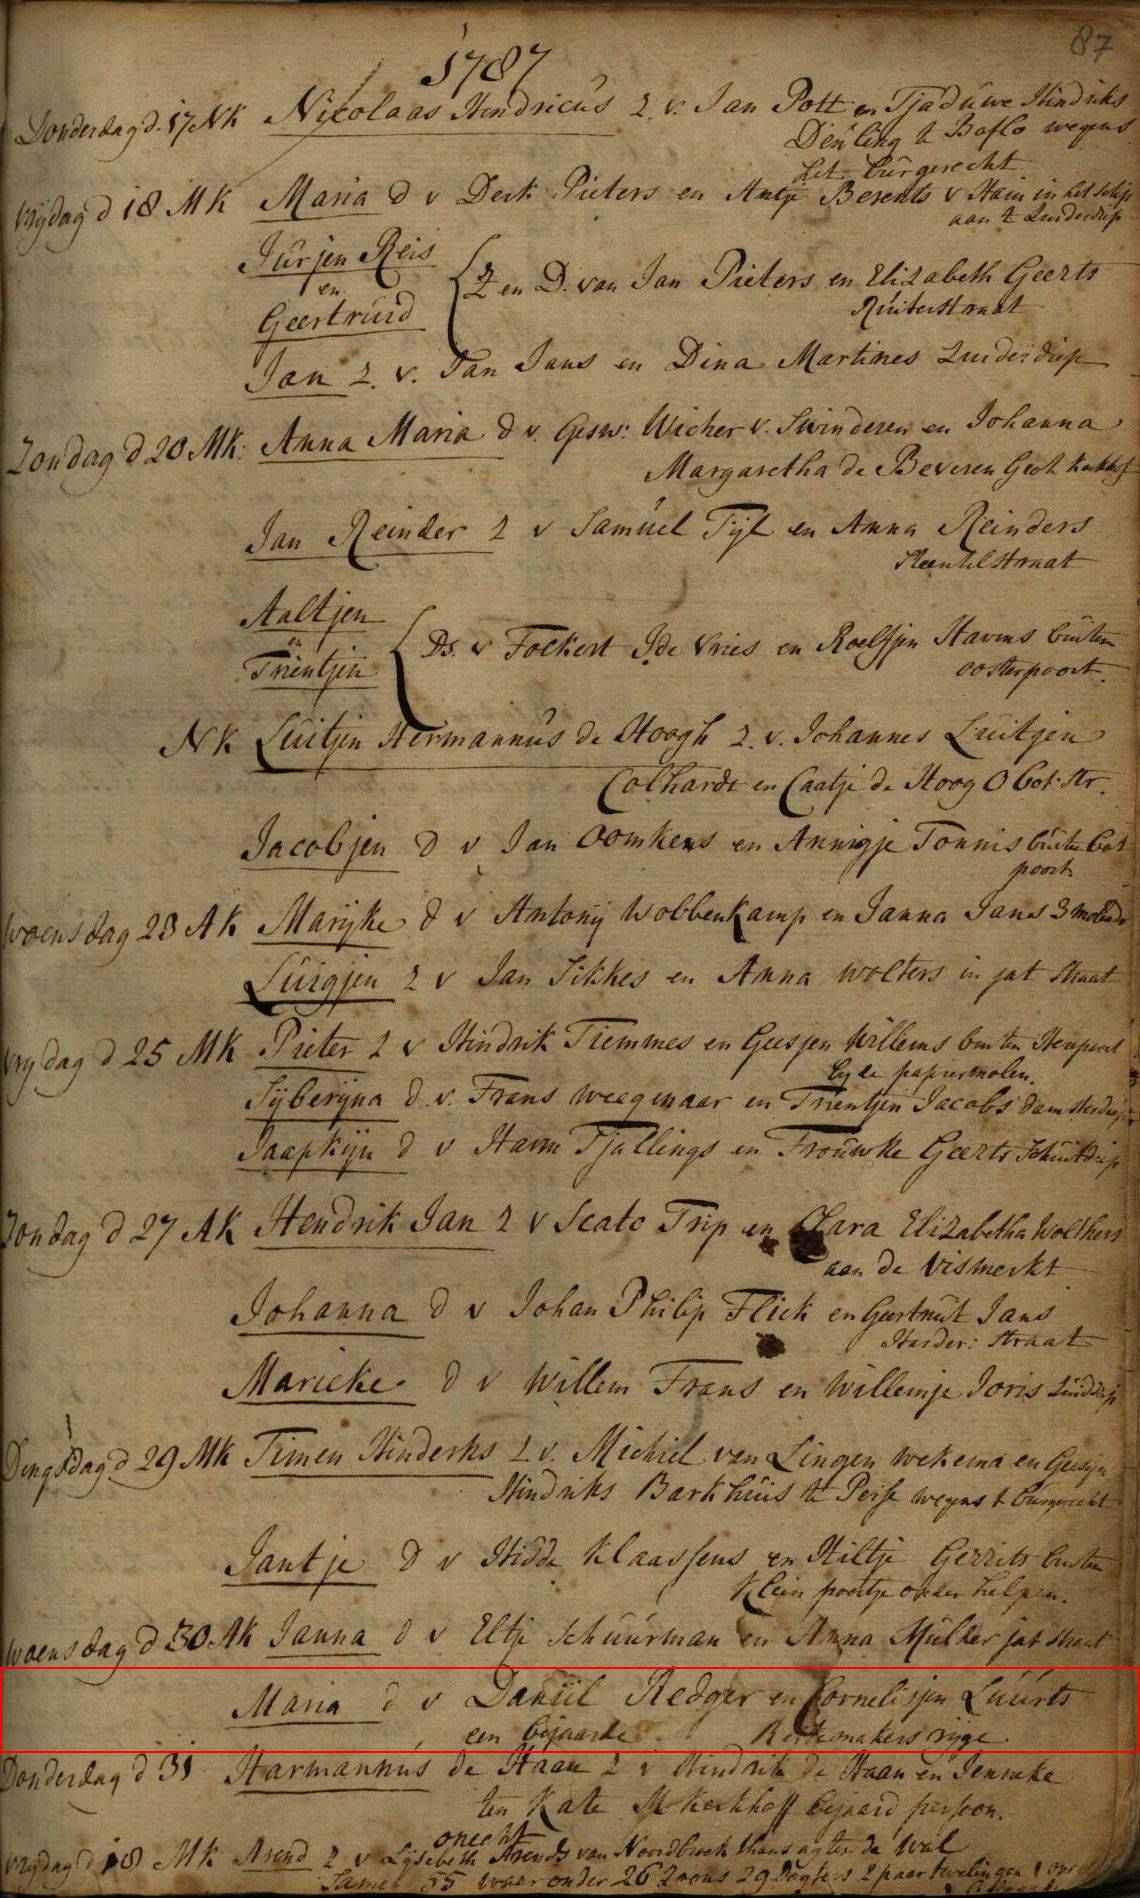 87
1787
Donderdag d. 17 NK Nicolaas Hindricus Z. v. Jan Pott en Tjaduwe Hindriks
Deuling te Baflo wegens
het burgerecht
Vrijdag d 18 MK Maria d v Derk Pieters en Antje Berents v Ham in het schip
aan t Zuiderdiep
Jurjen Reis
en
Geertruid
Z en D. van Jan Pieters en Elizabeth Geerts
Ruiterstraat
Jan Z. v. Jan Jans en Dina Martines Zuiderdiep
Zondag d 20 MK: Anna Maria d v. Gesw: Wicher v. Swinderen en Johanna
Margaretha de Beveren Groot Kerkhof
Jan Reinder Z v Samuel Tijl en Anna Reinders
Steentilstraat
Aaltjen
en
Trientjen
Ds. v Fockert J. de Vries en Roelfjen Harms buiten
oosterpoort.
NK Luitjen Hermannus de Hoogh Z. v. Johannes Luitjen
Colhardt en Caatje de Hoog O bot: str.
Jacobjen d v Jan Oomkens en Annigje Tonnis buiten bot
poort
Woensdag 23 AK Marijke d v Antonij Wobbenkamp en Janna Jans 3 molendr
Luigjen Z v Jan Sikkes en Anna Wolters in jat straat
Vrydag d 25 MK Pieter Z v Hindrik Tiemmes en Geesjen Willems buiten Herepoort
by de papiermolen.
Sijberyna d. v. Frans Waagenaar en Trientjen Jacobs damsterdiep
Jaapkijn d v Harm Tjallings en Trouwke Geerts Schuitdiep
Zondag d 27 AK Hendrik Jan Z v Scato Trip en Clara Elizabetha Wolthers
aan de Vismerkt
Johanna d v Johan Philip Flick en Geertruit Jans
Harder: straat
Marieke d v Willem Frans en Willemje Joris Zuiddiep
Dingsdag d 29 MK Timen Hinderks Z. v. Michiel van Lingen Wekema en Geesjn
Hindriks Barkhuis te Peise wegens t burgerecht
Jantje d v Hidde Klaassens en Hiltje Gerrits buiten
Klein poortje onder helpen.
Woensdag d 30 AK Janna d v Eltje Schuurman en Anna Muller jat straat
Maria d v Daniil Redger en Cornelisjen Luurts
een bejaarde Reitemakers rijge.
Donderdag d 31 Harmannus de Haan Z v Hindrik de Haan en Jenneke
ten Kate M Kerkhoff bejaard persoon.
onecht
Vrydag d 18 MK Arend Z v Lijsebeth Arends van Noordbroek thans agter de Wal
Samen 55 waar onder 26 Zoons 29 Dogters 2 paar twelingen 1 onecht